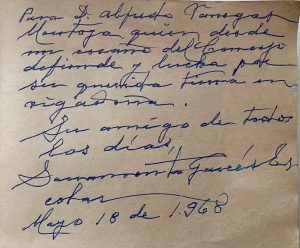 Para D. Alfredo Vanegas
Montoya quien desde
su escaño del Concejo
defiende y lucha por
su querida tierra en
vigadona.
Su amigo de todos
los días,
Sacramento Garcés Es
cobar
Mayo 18 de 1.968